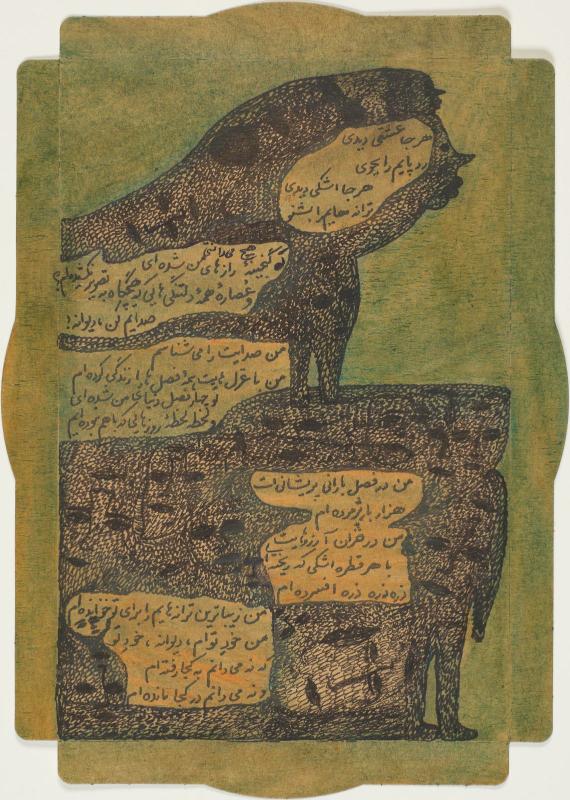 هر جا عشقی دیدی
رد پایم را بجوی
هر جا اشکی دیدی
ترانه هایم را بشنو
تو هیچ میدانستی
گنجینه رازهای من شده ای
و عصاره همه دلتنگی هایی که هیچگاه به تصویر نکشیده ام؟
صدایم کن، دیوانه!
من صدایت را می شناسم
من با غزل هایت همه فصل ها را زندگی کرده ام
تو چهار فصل دنیای من شده ای
و لحظه لحظه روزهایی که با هم بوده ایم
من در فصل بارانی پریشانی ات
هزار بار پژمرده ام
من در خزان آرزوهایت
با هر قطره اشکی که ریخته ای
ذره ذره افسرده ام
من زیباترین ترانه هایم را برای تو خوانده ام
من خود توام، دیوانه، خود تو
که نه می دانم به کجا رفته ام
و نه می دانم در کجا مانده ام